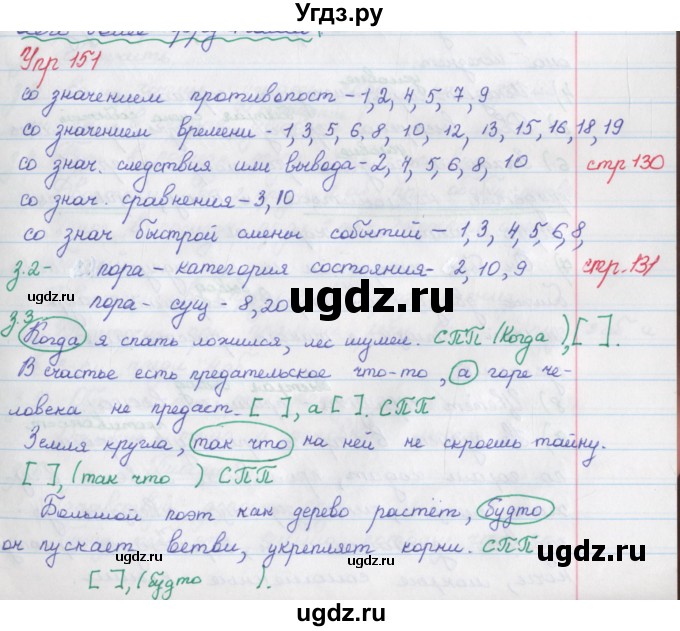 Угдз.ру
Упр 151
со значением противопост - 1, 2, 4, 5, 7, 9
со значением времени - 1, 3, 5, 6, 8, 10, 12, 13, 15, 16, 18, 19
со знач. следствия или вывода - 2, 4, 5, 6, 8, 10 стр 130
со знач. сравнения - 3, 10
со знач быстрой смены событий - 1, 3, 4, 5, 6, 8,
з.2 - пора - категория состояния - 2, 10, 9 стр. 131
пора - сущ - 8, 20
з.3 Когда я спать ложился, лес шумел. СПП (Когда ), [ ].
В счастье есть предательское что-то, а горе че-
ловека не предаст. [ ], а [ ]. СПП
Земля кругла, так что на ней не скроешь тайну.
[ ], (так что ) СПП
Большой поэт как дерево растёт, будто
он пускает ветви, укрепляет корни. СПП
[ ], (будто ).
угдз.ру
угдз.ру
угдз.ру
угдз.ру
угдз.ру
угдз.ру
угдз.ру